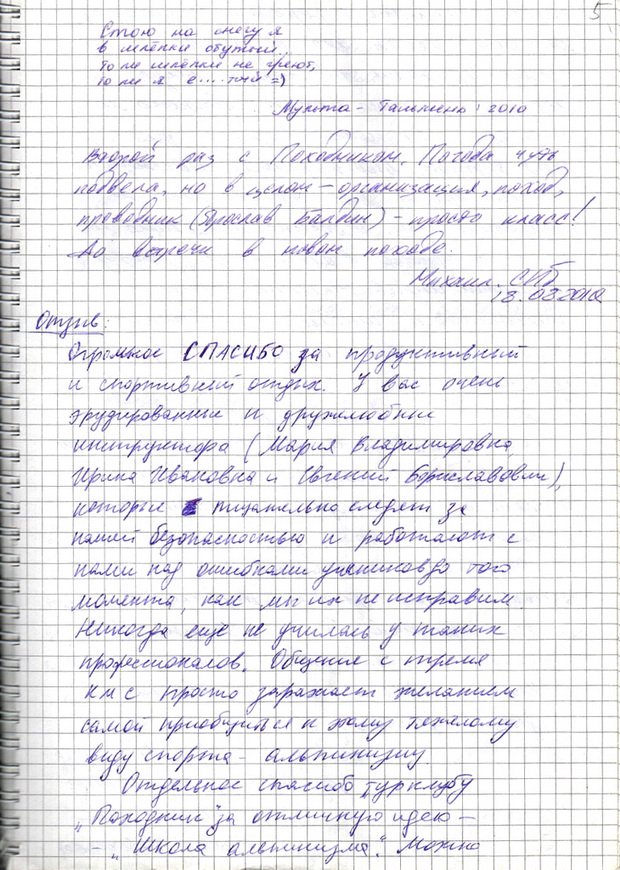 5
Стою на снегу я
в шлёпки обутый..
То ли шлёпки не греют,
то ли я ё....тый =)
Мульта - Тальмень! 2010
Второй раз с Походником. Погода чуть
подвела, но в целом - организация, поход,
проводник (Ярослав Балдин) - просто класс!
До встречи в новом походе.
Михаил. СПб
18.08.2010
Отзыв:
Огромное СПАСИБО за продуктивный
и спортивный отдых. У вас очень
эрудированные и дружелюбные
инструктора (Мария Владимировна,
Ирина Ивановна и Евгений Бориславович),
которые тщательно следят за
нашей безопасностью и работают с
нами над ошибками учеников до того
момента, как мы их не исправим
Никогда еще не училась у таких
профессионалов. Общение с тремя
кмс просто заражает желанием
самой приобщиться к этому тяжелому
виду спорта - альпинизму.
Отдельное спасибо турклубу
„Походник" за отличную идею -
- „Школа альпинизма". Можно